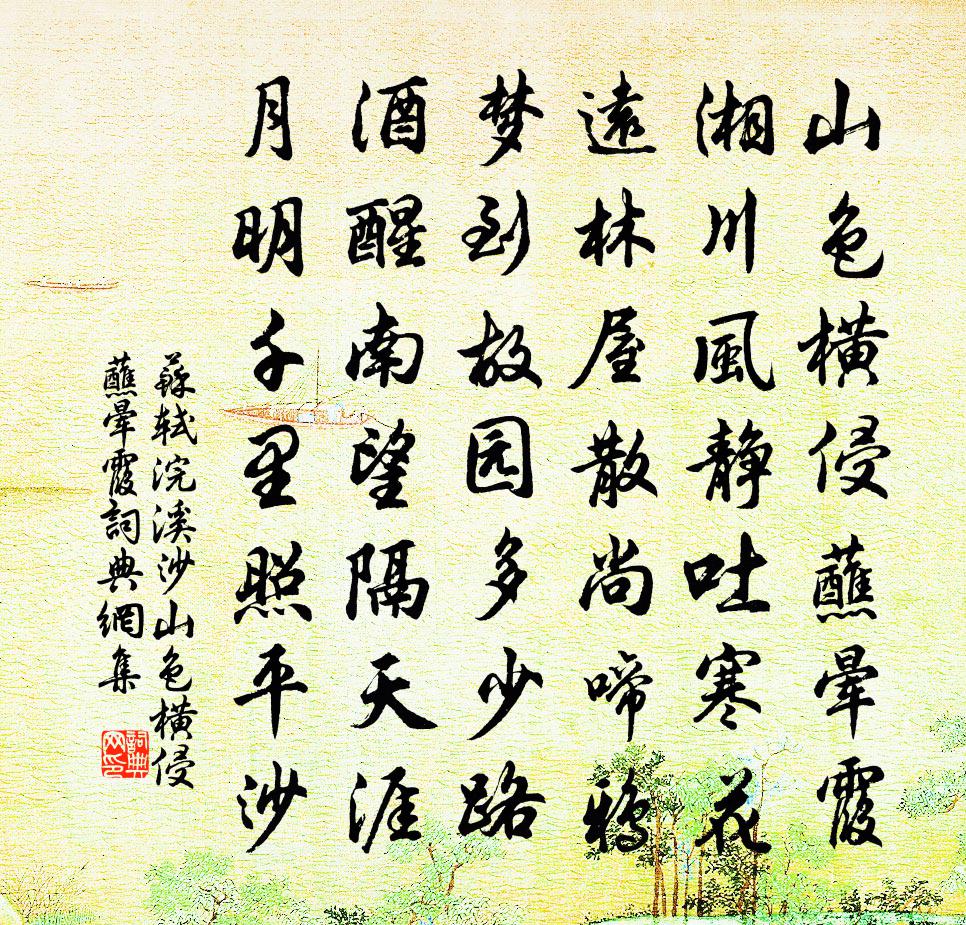 山色横侵蘸晕霞
湘川風静吐寒花
遠林屋散尚啼鴉
梦到故园多少路
酒醒南望隔天涯
月明千里照平沙
蘇軾浣溪沙山色横侵
蘸晕霞詞典網集
詞典
网印